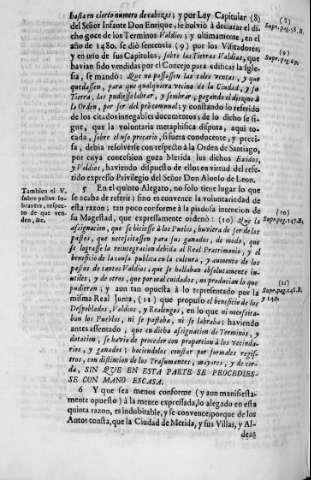 hasta en cierto numero de cabezas; y por Ley Capitular (8)
del Señor Infante Don Enrique, se bolviò à declarar el di-
cho goce de los Terminos Valdios; y ultimamente, en el
año de 1480. se diò sentencia (9) por los Visitadores,
y en uno de sus Capitulos, sobre las Tierras Valdias, que
havian sido vendidas por el Concejo para edificar la Igle-
sia, se mandò: Que no passassen las tales ventas, y que
quedassen, para que qualquiera vecino de la Ciudad, y su
Tierra, las pudiesse labrar, y sembrar, pagando el diezmo à
la Orden, por ser del procomunal; y constando lo referido
de los citados innegables documentos, de lo dicho se si-
gue, que la voluntaria metaphisica disputa, aqui to-
cada, sobre el uso precario, si fuera conducente, y preci-
sa, debia resolverse con respecto à la Orden de Santiago,
por cuya concession goza Merida los dichos Exidos,
y Valdios, haviendo dispuesto de ellos en virtud del refe-
rido expresso Privilegio del Señor Don Alonso de Leon.
5 En el quinto Alegato, no solo tiene lugar lo que
se acaba de referir; sino et convence la voluntariedad de
esta razon; tan poco conforme à la piadosa intencion de
su Magestad, que expressamente ordenò: (10) Que la
assignacion, que se hiciesse à los Pueblos, huviera de ser de los
pastos, que necessitassen para sus ganados, de modo, que
se lograsse la reintegracion debida al Real Patrimonio, y el
beneficio de la causa publica en la cultura, y aumento de los
pastos de tantos Valdios, que se hallaban absolutamente in-
utiles, y de otros, que por mal cuidados, no producian lo que
pudieran; y aun tan opuesta à lo representado por la
misma Real Junta, (11) que propuso el beneficio de los
Despoblados, Valdios, y Realengos, en lo que ni necessita-
ban los Pueblos, ni se pastaba, ni se labraba; haviendo
antes assentado, que en dicha assignacion de Terminos, y
dotacion, se havia de proceder con proporcion à los vecinda-
rios, y ganados; haciendoles constar por formales regis-
tros, con distincion de los Trasumantes, mayores, y de cer-
da, SIN QUE EN ESTA PARTE SE PROCEDIES-
SE CON MANO ESCASA.
6 Y que sea menos conforme (y aun manifiesta-
mente opuesto) à la mente expressada, lo alegado en esta
quinta razon, es indubitable, y se convence; porque de los
Autos consta, que la Ciudad de Merida, y sus Villas, y Al-
deas
(8)
Supr. pag.
(9)
Supr. pag.
Tambien el V.
sobre pastos so-
brantes, respec-
to de que ven-
den, &c.
(10)
Supr. pag. 147. B.
(11)
Supr. pag. 147. B.
y 148.